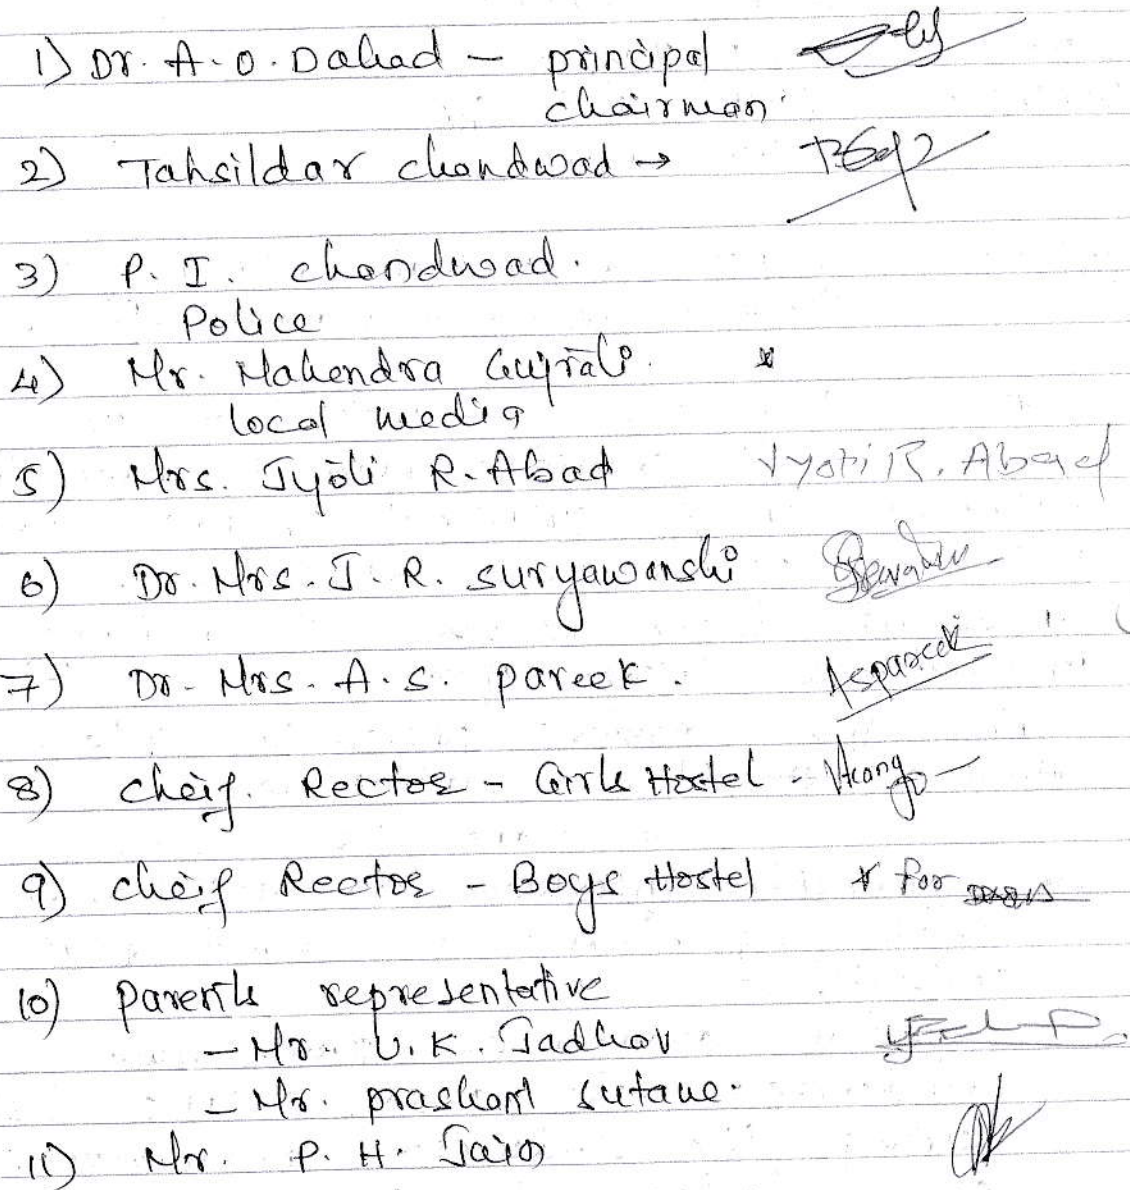 1) Dr. A. O. Dahad - principal
chairman
2) Tahsildar chandwad →
3) P. I. chandwad.
Police
4) Mr. Mahendra Gujrathi
local media
5) Mrs. Jyoti R. Abad Jyoti R. Abad
6) Dr. Mrs. J. R. suryawanshi
7) Dr. Mrs. A. S. pareek. Aspareek
8) cheif. Rector - Girls Hostel -
9) cheif Rector - Boys Hostel * For
10) parents representative
- Mr. V. K. Jadhav
- Mr. prashant sutane.
11) Mr. P. H. Jain